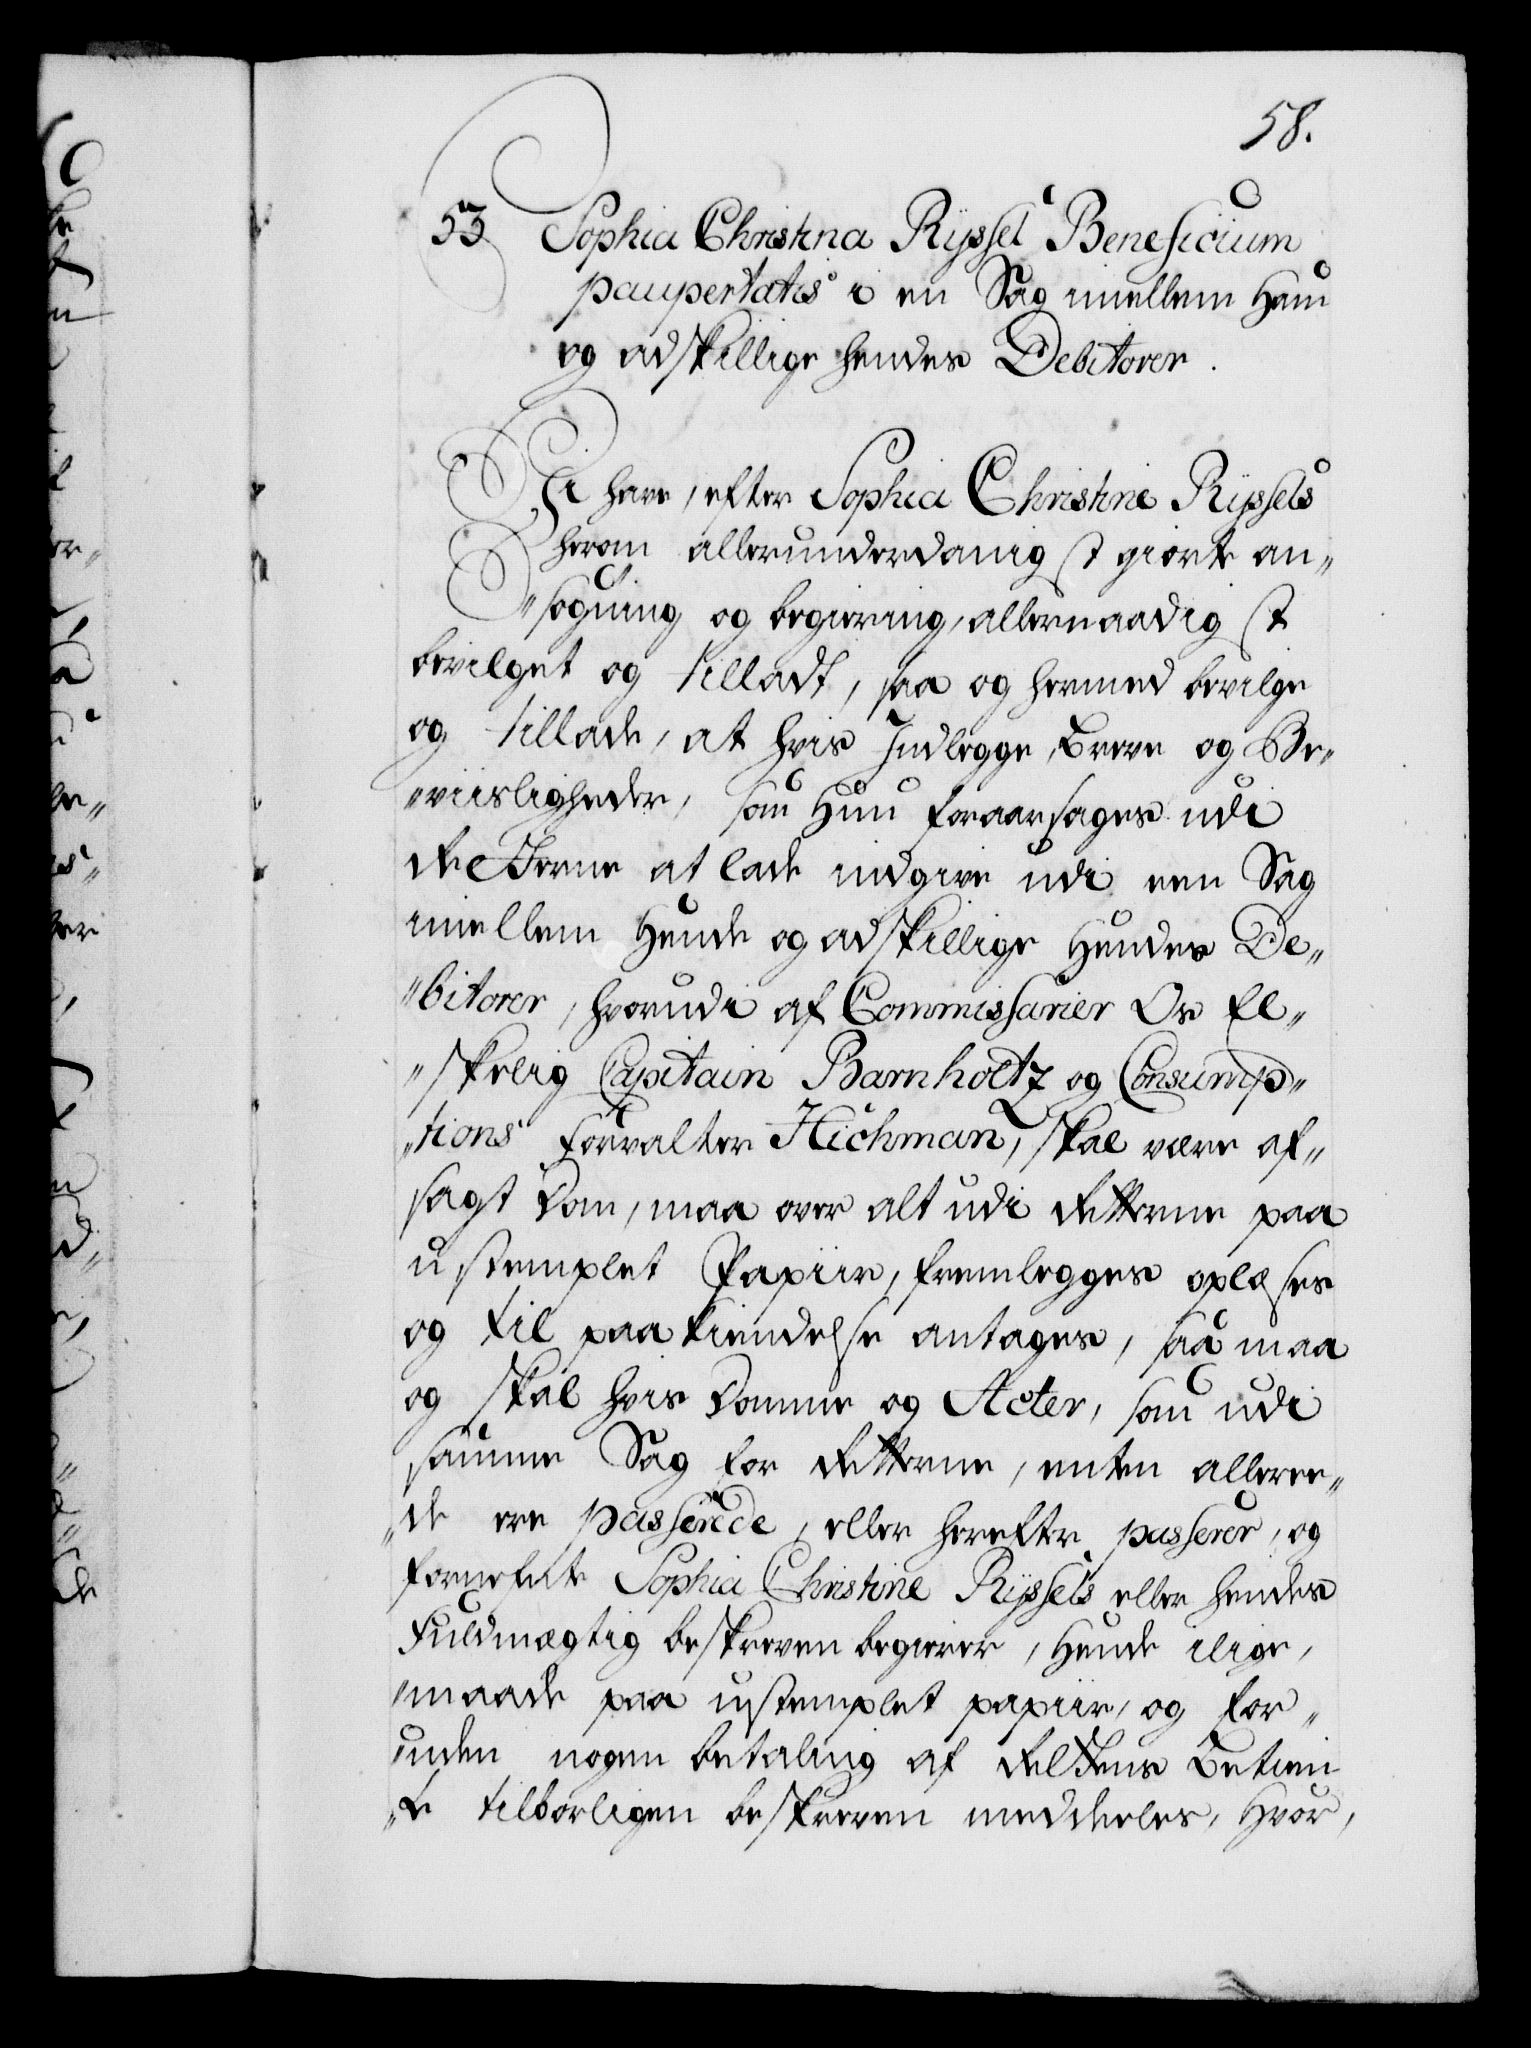 58.
53 Sophia Christina Ryssel Beneficium
paupertatis i en Sag imellem Ham
og adskillige hendes Debitorer.
Vi have, efter Sophia Christine Ryssels
herom allerunderdanigst giorte an„
„søgning og begiering, allernaadigst
bevilget og tilladt, saa og hermed bevilge
og tillade, at hvis Indlegge, Breve og Be„
„viisligheder, som Hun foraarsages udi
Retterne at lade indgive udi een Sag
imellem Hende og adskillige Hendes De„
„bitorer, hvorudi af Commissarier Os El„
„skelig Capitain Barnholtz og Consump„
„tions Forvalter Hichman, skal være af„
sagt Dom, maa over alt udi Retterne paa
ustemplet Papiir, fremlegges oplæses
og til paakiendelse antages, saa maa
og skal hvis Domme og Acter, som udi
samme Sag for Retterne, enten alleree„
„de ere passerede, eller herefter passerer, og
fornefnte Sophia Christine Ryssels eller hendes
Fuldmægtig beskreven begierer, Hende ilige,
maade paa ustemplet papiir, og for„
uden nogen betaling af Rettens Betien
„te tilbørligen beskreven meddeeles, Hvor,